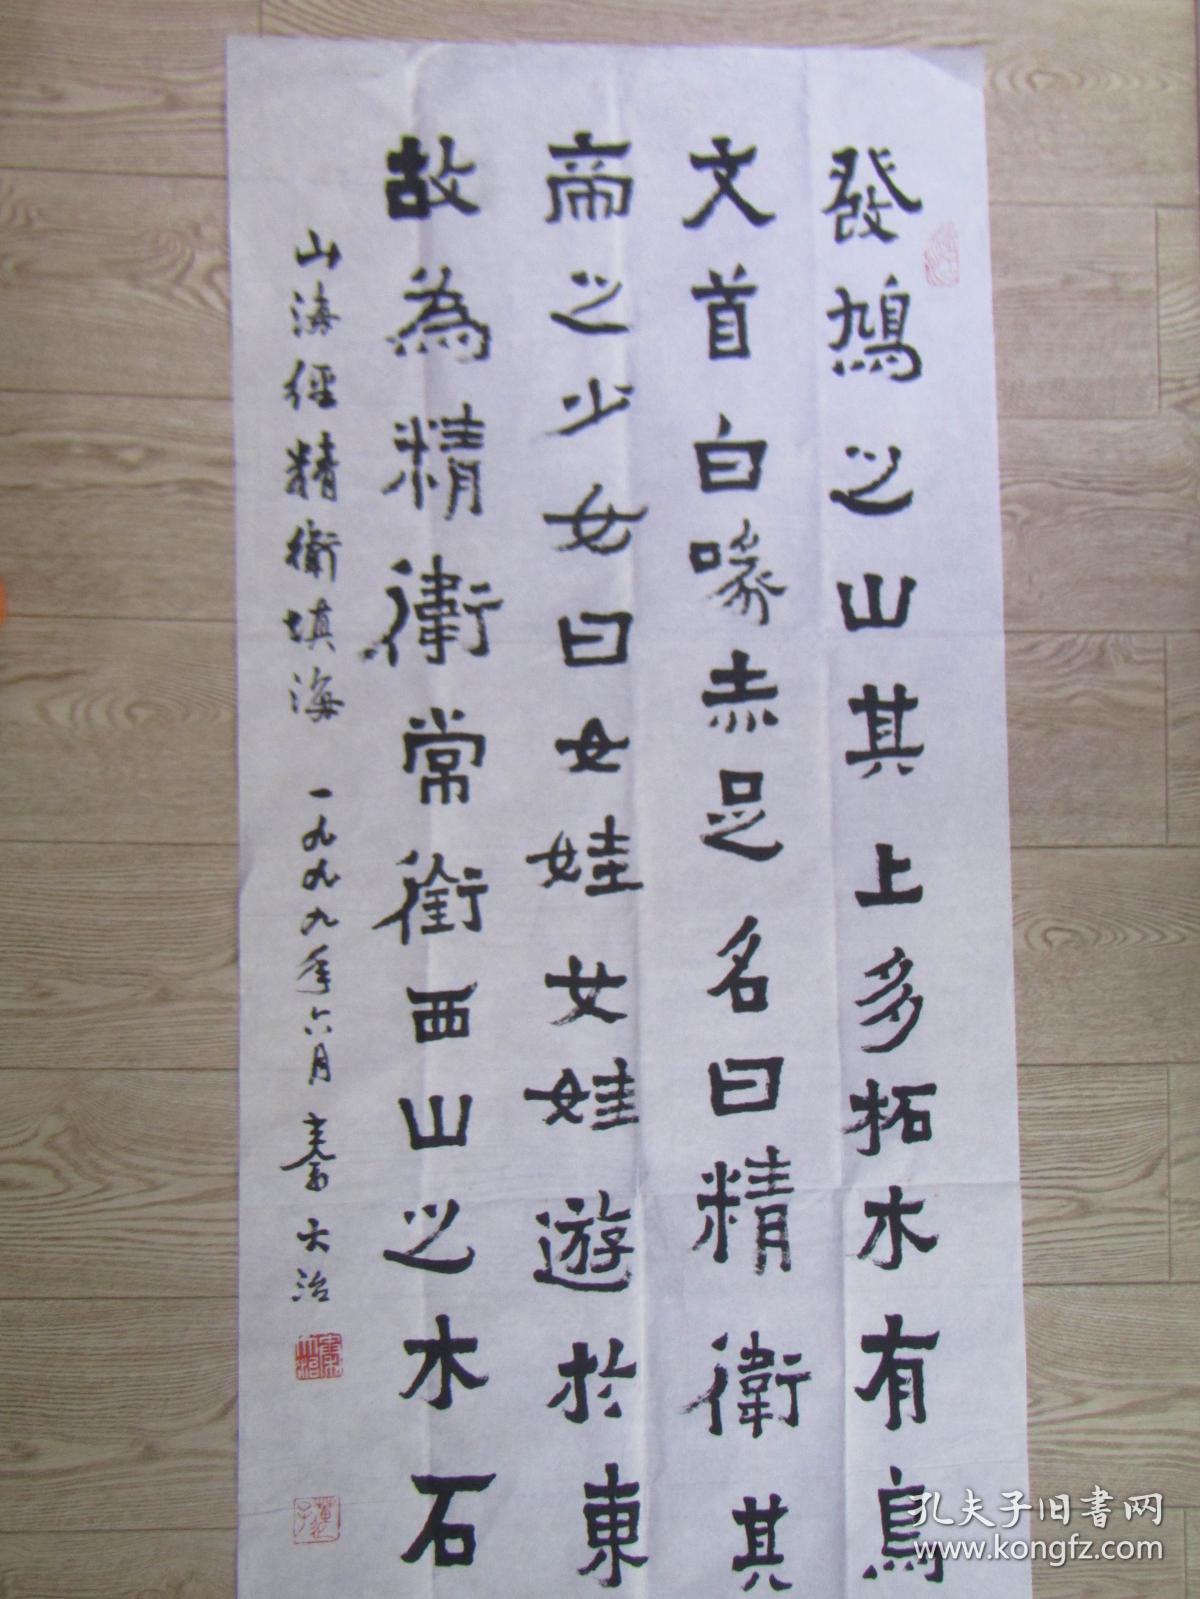 發鳩之山其上多柘木有鳥
文首白喙赤足名曰精衛其
帝之少女曰女娃女娃遊於東
故為精衛常銜西山之木石
山海經精衛填海 一九九九年六月 秦大治
孔夫子旧书网
www.kongfz.com